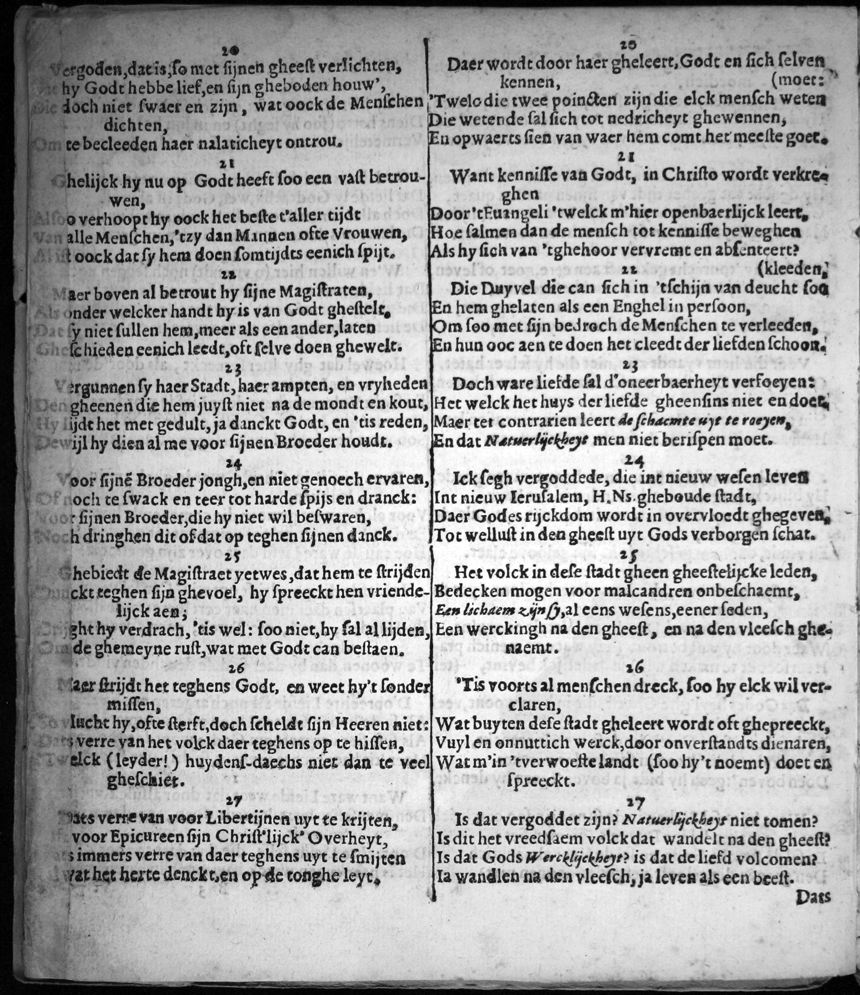 20
Vergoden, dat is, so met sijnen gheest verlichten,
hy Godt hebbe lief, en sijn gheboden houw',
doch niet swaer en zijn, wat oock de Menschen
dichten,
Om te becleeden haer nalaticheyt ontrou.
21
Ghelijck hy nu op Godt heeft soo een vast betrou-
wen,
Alsoo verhoopt hy oock het beste t'aller tijdt
Van alle Menschen, 'tzy dan Mannen ofte Vrouwen,
Al ist oock dat sy hem doen somtijdts eenich spijt.
22
Maer boven al betrout hy sijne Magistraten,
Als onder welcker handt hy is van Godt ghestelt,
Dat sy niet sullen hem, meer als een ander, laten
Gheschieden eenich leedt, oft selve doen ghewelt.
23
Vergunnen sy haer Stadt, haer ampten, en vryheden
Den gheenen die hem juyst niet na de mondt en kout,
Hy lijdt het met gedult, ja danckt Godt, en 'tis reden,
Dewijl hy dien al me voor sijnen Broeder houdt.
24
Voor sijnē Broeder jongh, en niet genoech ervaren,
Of noch te swack en teer tot harde spijs en dranck:
Voor sijnen Broeder, die hy niet wil beswaren,
Noch dringhen dit of dat op teghen sijnen danck.
25
Ghebiedt de Magistraet yetwes, dat hem te strijden
Dunckt teghen sijn ghevoel, hy spreeckt hen vriende-
lijck aen;
Crijght hy verdrach, 'tis wel: soo niet, hy sal al lijden,
Om de ghemeyne rust, wat met Godt can bestaen.
26
Maer strijdt het teghens Godt, en weet hy't sonder
missen,
So vlucht hy, ofte sterft, doch scheldt sijn Heeren niet:
Dats verre van het volck daer teghens op te hissen,
Twelck (leyder!) huydens-daechs niet dan te veel
gheschiet.
27
Dats verre van voor Libertijnen uyt te krijten,
voor Epicureen sijn Christ'lijck' Overheyt,
immers verre van daer teghens uyt te smijten
wat het herte denckt, en op de tonghe leyt.
20
Daer wordt door haer gheleert, Godt en sich selven
kennen, (moet:
'Twelc die twee poincten zijn die elck mensch weten
Die wetende sal sich tot nedricheyt ghewennen,
En opwaerts sien van waer hem comt het meeste goet.
21
Want kennisse van Godt, in Christo wordt verkre-
ghen
Door 'tEuangeli 'twelck m'hier openbaerlijck leert,
Hoe salmen dan de mensch tot kennisse beweghen
Als hy sich van 'tghehoor vervremt en absenteert?
22 (kleeden,
Die Duyvel die can sich in 'tschijn van deucht soo
En hem ghelaten als een Enghel in persoon,
Om soo met sijn bedroch de Menschen te verleeden,
En hun ooc aen te doen het cleedt der liefden schoon.
23
Doch ware liefde sal d'oneerbaerheyt verfoeyen:
Het welck het huys der liefde gheensins niet en doet,
Maer ter contrarien leert de schaemte uyt te roeyen,
En dat Natuerlijckheyt men niet berispen moet.
24
Ick segh vergoddede, die int nieuw wesen leven
Int nieuw Ierusalem, H.Ns. gheboude stadt,
Daer Godes rijckdom wordt in overvloedt ghegeven,
Tot wellust in den gheest uyt Gods verborgen schat.
25
Het volck in dese stadt gheen gheestelijcke leden,
Bedecken mogen voor malcandren onbeschaemt,
Een lichaem zijn sy, al eens wesens, eener seden,
Een werckingh na den gheest, en na den vleesch ghe-
naemt.
26
'Tis voorts al menschen dreck, soo hy elck wil ver-
claren,
Wat buyten dese stadt gheleert wordt oft ghepreeckt,
Vuyl en onnuttich werck, door onverstandts dienaren,
Wat m'in 'tverwoeste landt (soo hy't noemt) doet en
spreeckt.
27
Is dat vergoddet zijn? Natuerlijckheyt niet tomen?
Is dit het vreedsaem volck dat wandelt na den gheest?
Is dat Gods Wercklijckheyt? is dat de liefd volcomen?
Ia wandlen na den vleesch, ja leven als een beest.
Dats